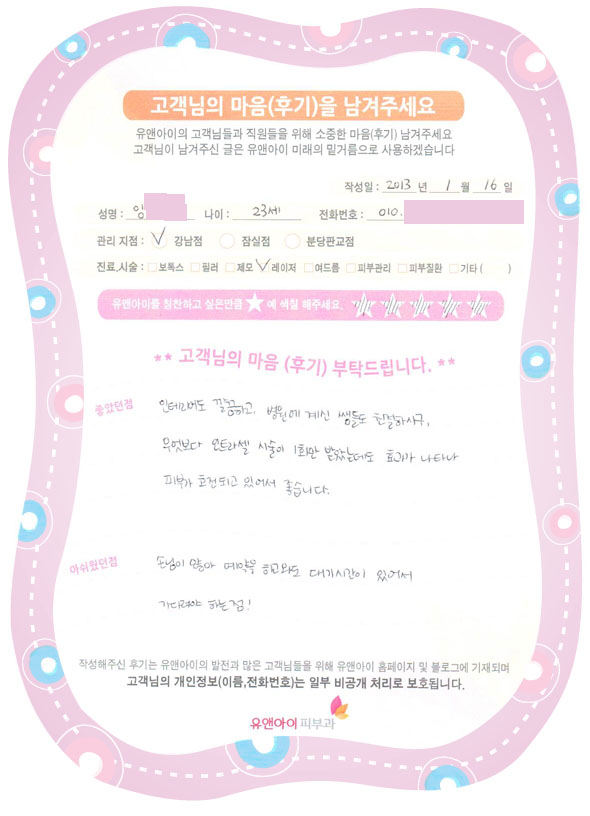 고객님의 마음(후기)을 남겨주세요
유앤아이의 고객님들과 직원들을 위해 소중한 마음(후기) 남겨주세요
고객님이 남겨주신 글은 유앤아이 미래의 밑거름으로 사용하겠습니다
작성일 : 2013 년 1 월 16 일
성명 : 임 나이 : 23세 전화번호 : 010.
관리 지점 : 강남점 잠실점 분당판교점
진료,시술 : 보톡스 필러 제모 레이저 여드름 피부관리 피부질환 기타 ( )
유앤아이를 칭찬하고 싶은만큼 ★ 에 색칠 해주세요.
** 고객님의 마음 (후기) 부탁드립니다. **
좋았던점
인테리어도 깔끔하고, 병원에 계신 쌤들도 친절하시구,
무엇보다 울트라셀 시술이 1회만 받았는데도 효과가 나타나
피부가 호전되고 있어서 좋습니다.
아쉬웠던점
손님이 많아 예약을 하고와도 대기시간이 있어서
기다려야 하는점!
작성해주신 후기는 유앤아이의 발전과 많은 고객님들을 위해 유앤아이 홈페이지 및 블로그에 기재되며
고객님의 개인정보(이름,전화번호)는 일부 비공개 처리로 보호됩니다.
유앤아이 피부과